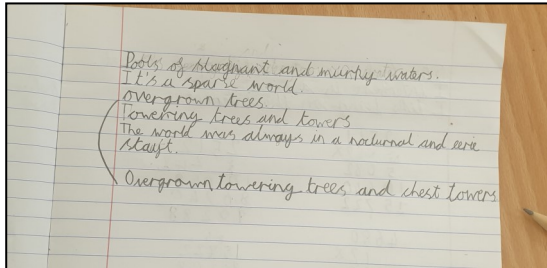 Pools of stagnant and murky waters.
It's a sparse world.
overgrown trees.
Towering trees and towers
The world was always in a nocturnal and eerie
Overgrown, towering trees and chest towers